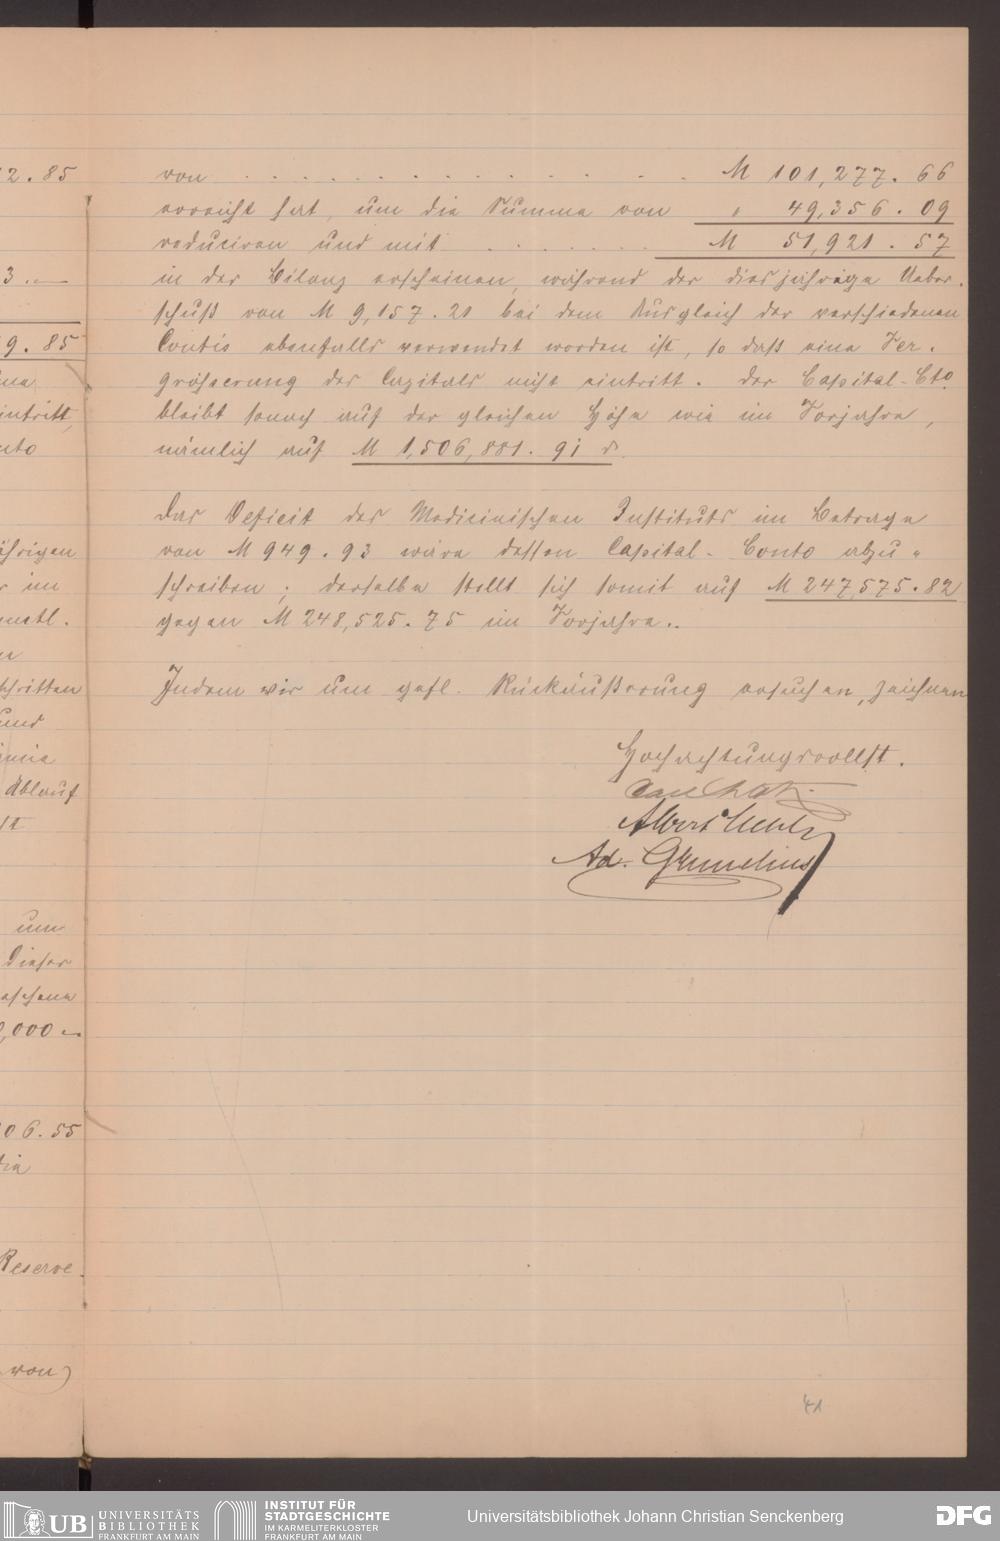 2.85
3.—
9.85
ine
eintritt,
nto
jährigen
r im
n
schritten
und
Ablauf
um
Dieser
,000 —
06.55
die
Reserve
von)
von . . . . . . . . . . . . M 101,277.66
erreicht hat, um die Summe von " 49,356.09
reduciren und mit . . . . . . M 51,921.57
in der Bilanz erscheinen, während der diesjährige Ueber-
schuß von M 9,157.21 bei dem Ausgleich der verschiedenen
Contis ebenfalls verwendet worden ist, so daß eine Ver-
größerung des Capitals nicht eintritt. Der Capital-Cto
bleibt sonach auf der gleichen Höhe wie im Vorjahre,
nämlich auf M 1,506,881.91
Das Deficit des Medicinischen Instituts im Betrage
von M 949.93 wäre dessen Capital-Conto abzu-
schreiben; derselbe stellt sich somit auf M 247,575.82
gegen M 248,525.75 im Vorjahre.
Indem wir um gefl. Rückäußerung ersuchen, zeichnen
Hochachtungsvollst.
Albert
Ad. Grunelius
41
UB UNIVERSITÄTS
BIBLIOTHEK
FRANKFURT AM MAIN
INSTITUT FÜR
STADTGESCHICHTE
IM KARMELITERKLOSTER
FRANKFURT AM MAIN
Universitätsbibliothek Johann Christian Senckenberg
DFG